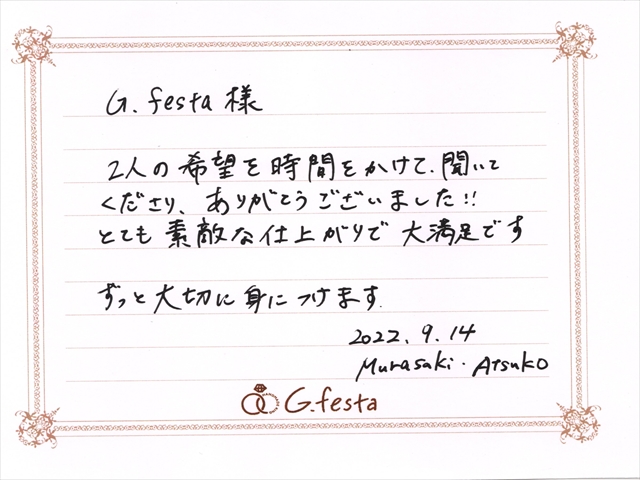 G.festa 様
2人の希望を時間をかけて、聞いて
くださり、ありがとうございました!!
とても素敵な仕上がりで大満足です
ずっと大切に身につけます.
2022.9.14
Murasaki・Atsuko
G.festa